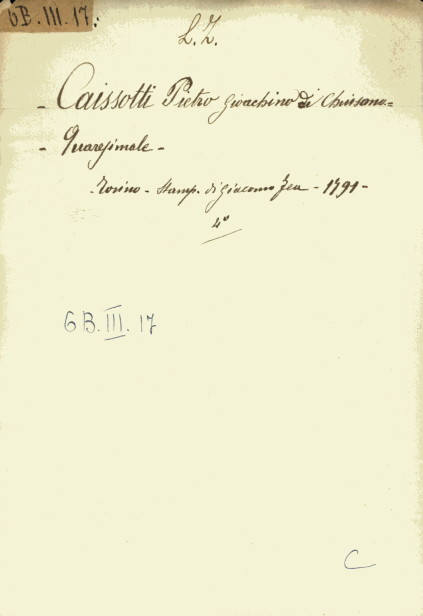 6B.III.17:
L.Z.
- Caissotti Pietro Gioachino di Chiusano=
- Quaresimale -
Torino - Stamp. di Giacomo Fea - 1791 -
4°
6B.III.17
C